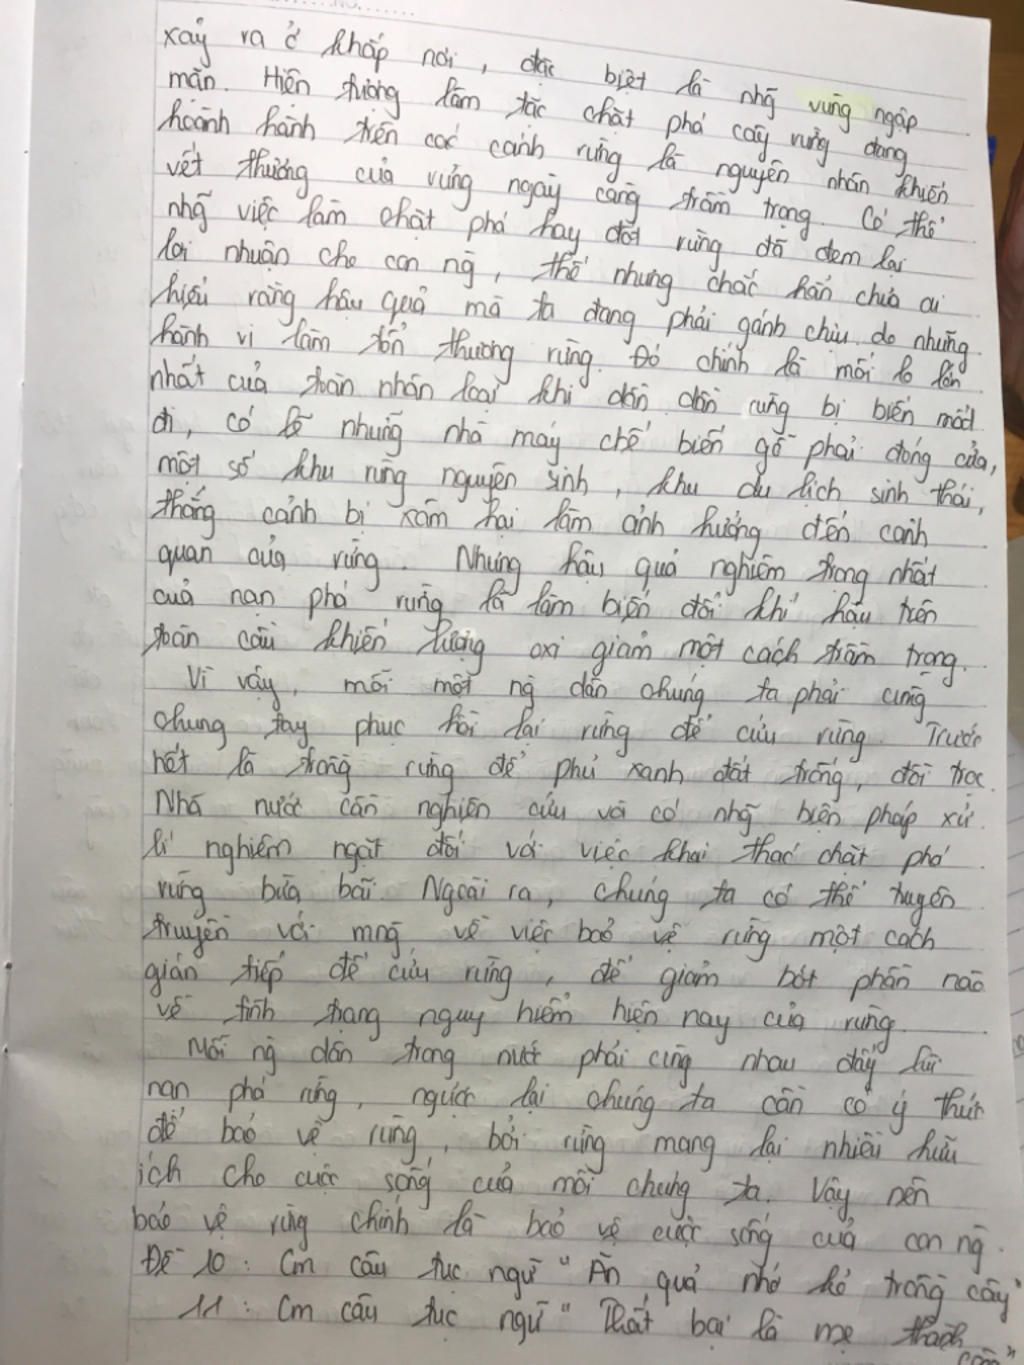 xảy ra ở khắp nơi, đặc biệt là nhg̃ vùng ngập
mặn. Hiện tượng lâm tặc chặt phá cây rừng đang
hoành hành trên các cánh rừng là nguyên nhân khiến
vết thương của rừng ngày càng trầm trọng. Có thể
nhg̃ việc làm chặt phá hay đốt rừng đã đem lại
lợi nhuận cho con ng̀, thế nhưng chắc hẳn chưa ai
hiểu rằng hậu quả mà ta đang phải gánh chịu do những
hành vi làm tổn thương rừng. Đó chính là mối lo lớn
nhất của toàn nhân loại khi dần dần rừng bị biến mất
đi, có lẽ những nhà máy chế biến gỗ phải đóng cửa,
một số khu rừng nguyên sinh, khu du lịch sinh thái,
thắng cảnh bị xâm hại làm ảnh hưởng đến cảnh
quan của rừng. Nhưng hậu quả nghiêm trọng nhất
của nạn phá rừng là làm biến đổi khí hậu trên
toàn cầu khiến lượng oxi giảm một cách trầm trọng.
Vì vậy, mỗi một ng̀ dân chúng ta phải cùng
chung tay phục hồi lại rừng để cứu rừng. Trước
hết là trồng rừng để phủ xanh đất trống, đồi trọc.
Nhà nước cần nghiên cứu và có nhg̃ biện pháp xử
lí nghiêm ngặt đối với việc khai thác chặt phá
rừng bừa bãi. Ngoài ra, chúng ta có thể tuyên
truyền với mng̀ về việc bảo vệ rừng một cách
gián tiếp để cứu rừng, để giảm bớt phần nào
về tình trạng nguy hiểm hiện nay của rừng.
Mỗi ng̀ dân trong nước phải cùng nhau đẩy lùi
nạn phá rừng, ngược lại chúng ta cần có ý thức
để bảo vệ rừng, bởi rừng mang lại nhiều hữu
ích cho cuộc sống của mỗi chúng ta. Vậy nên
bảo vệ rừng chính là bảo vệ cuộc sống của con ng̀.
Đề 10: Cm câu tục ngữ "Ăn quả nhớ kẻ trồng cây"
11: Cm câu tục ngữ "Thất bại là mẹ thành
công"